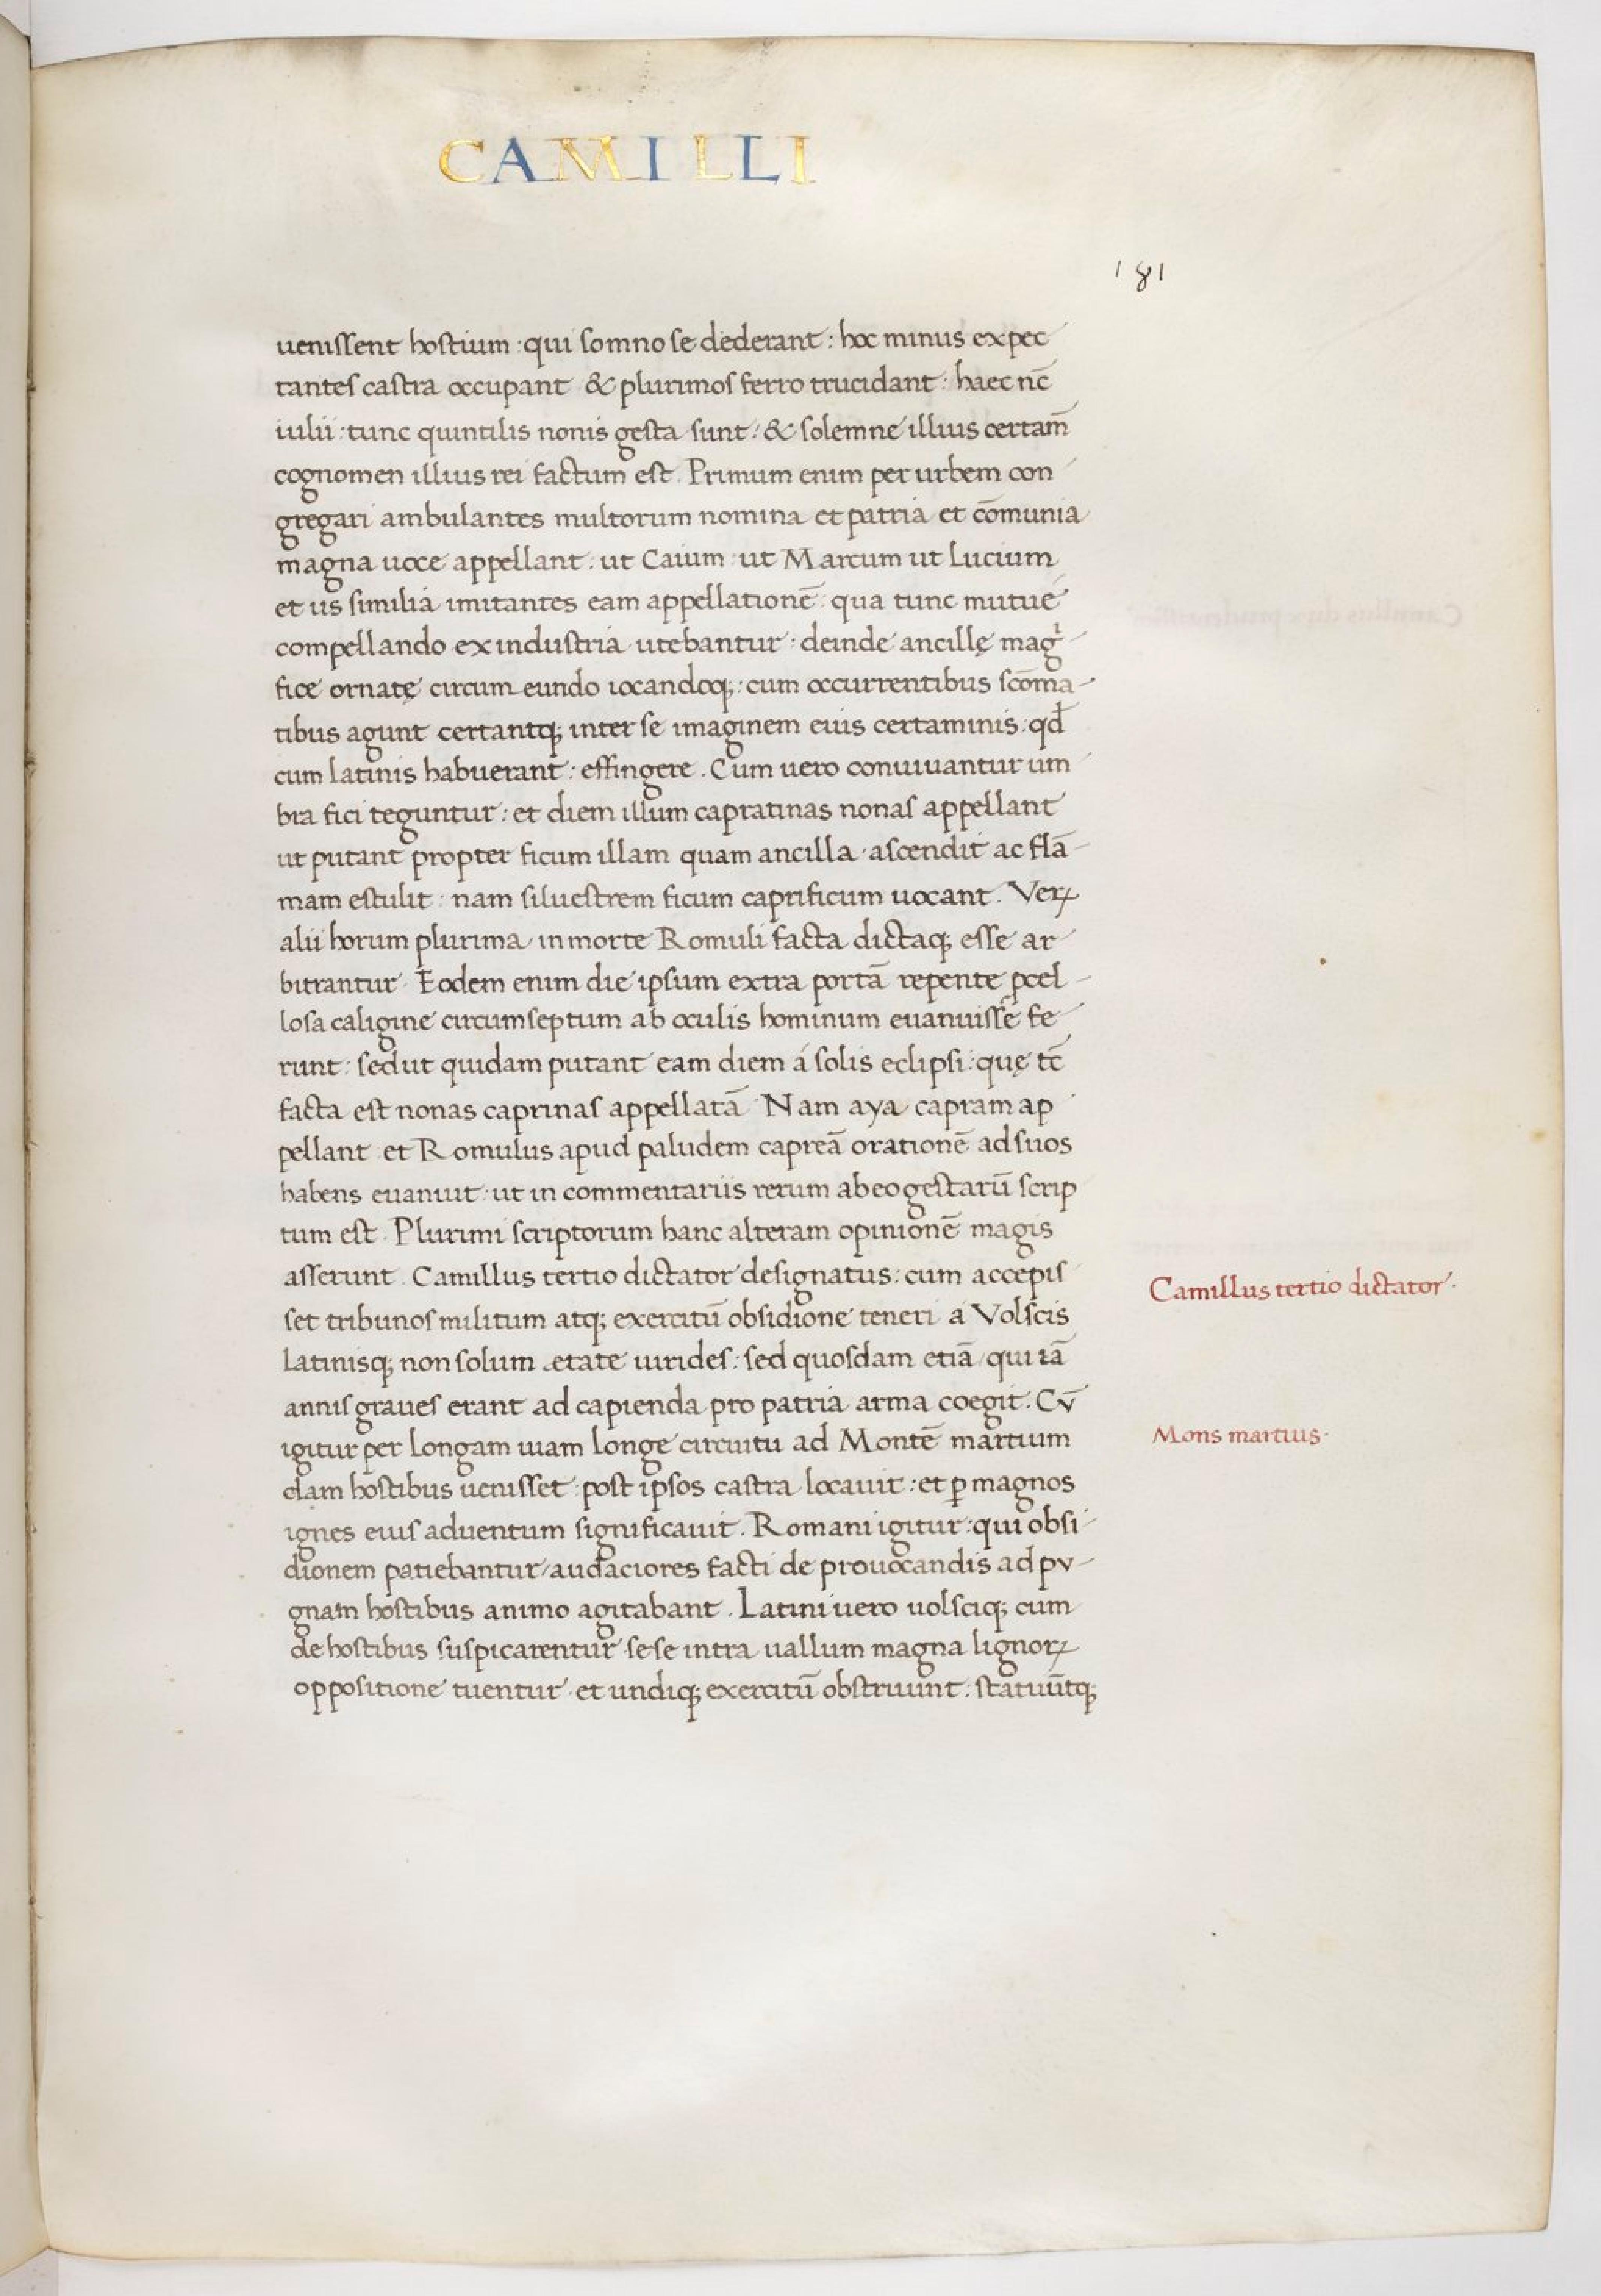 CAMILLI
181
uenissent hostium : qui somno se dederant : hoc minus expec
tantes castra occupant & plurimos ferro trucidant : haec nc̄
iulii : tunc quintilis nonis gesta sunt : & solemne illius certam̄
cognomen illius rei factum est . Primum enim per urbem con
gregari ambulantes multorum nomina et patria et cōmunia
magna uoce appellant : ut Caium ut Marcum ut Lucium
et iis similia imitantes eam appellationē : qua tunc mutue
compellando ex industria utebantur : deinde ancillę magi
fice ornatę circum eundo iocandoq; : cum occurrentibus scōma
tibus agunt certantq; inter se imaginem eius certaminis : qd̄
cum latinis habuerant : effingere . Cum uero conuiuantur um
bra fici teguntur : et diem illum capratinas nonas appellant
ut putant propter ficum illam quam ancilla ascendit ac flā
mam estulit : nam siluestrem ficum caprificum uocant . Veꝝ
alii horum plurima in morte Romuli facta dictaq; esse ar
bitrantur . Eodem enim die ipsum extra portā repente pcel
losa caligine circumseptum ab oculis hominum euanuisse fe
runt : sed ut quidam putant eam diem á solis eclipsi : quę tc̄
facta est nonas caprinas appellatā . Nam aya capram ap
pellant et Romulus apud paludem capreā orationē ad suos
habens euanuit : ut in commentariis rerum ab eo gestarū scrip
tum est . Plurimi scriptorum hanc alteram opinionē magis
asserunt . Camillus tertio dictator designatus : cum accepis
set tribunos militum atq; exercitū obsidione teneri a Volscis
Latinisq; non solum ætate uirides : sed quosdam etiā / qui iā
annis graues erant ad capienda pro patria arma coegit . Cv̄
igitur per longam uiam longe circuitu ad Montē martium
clam hostibus uenisset : post ipsos castra locauit : et ꝑ magnos
ignes eius aduentum significauit . Romani igitur : qui obsi
dionem patiebantur / audaciores facti de prouocandis ad pv
gnam hostibus animo agitabant . Latini uero uolsciq; cum
de hostibus suspicarentur se se intra uallum magna lignoꝝ
oppositione tuentur et undiq; exercitū obstruunt : statuūtq;
Camillus tertio dictator .
Mons martius .